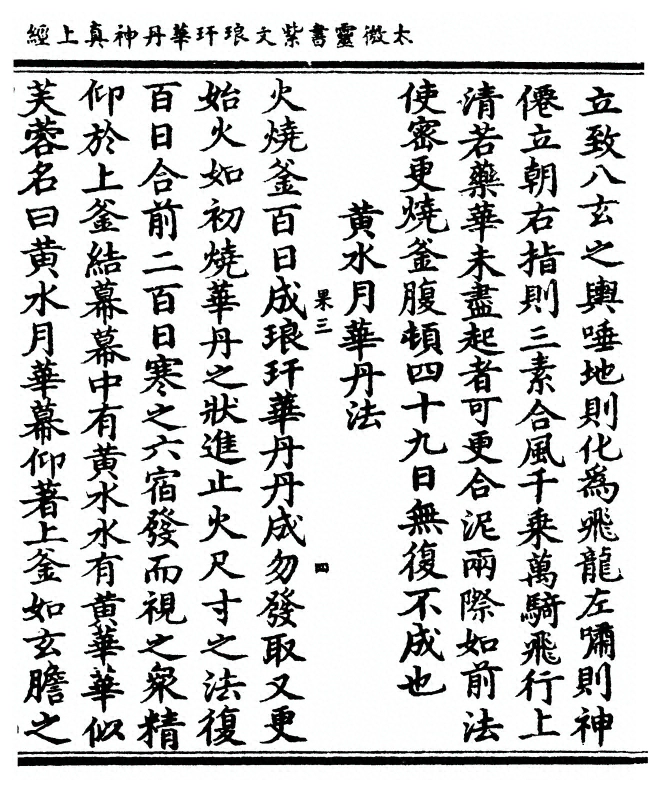 太微靈書紫文琅玕華丹神真上經
立致八玄之輿唾地則化為飛龍左嘯則神
僊立朝右指則三素合風千乘萬騎飛行上
清若藥華未盡起者可更合泥兩際如前法
使密更燒釜腹頓四十九日無復不成也
黃水月華丹法
果三
四
火燒釜百日成琅玕華丹丹成勿發取又更
始火如初燒華丹之狀進止火尺寸之法復
百日合前二百日寒之六宿發而視之衆精
仰於上釜結幕幕中有黃水水有黃華華似
芙蓉名曰黃水月華幕仰著上釜如玄膽之